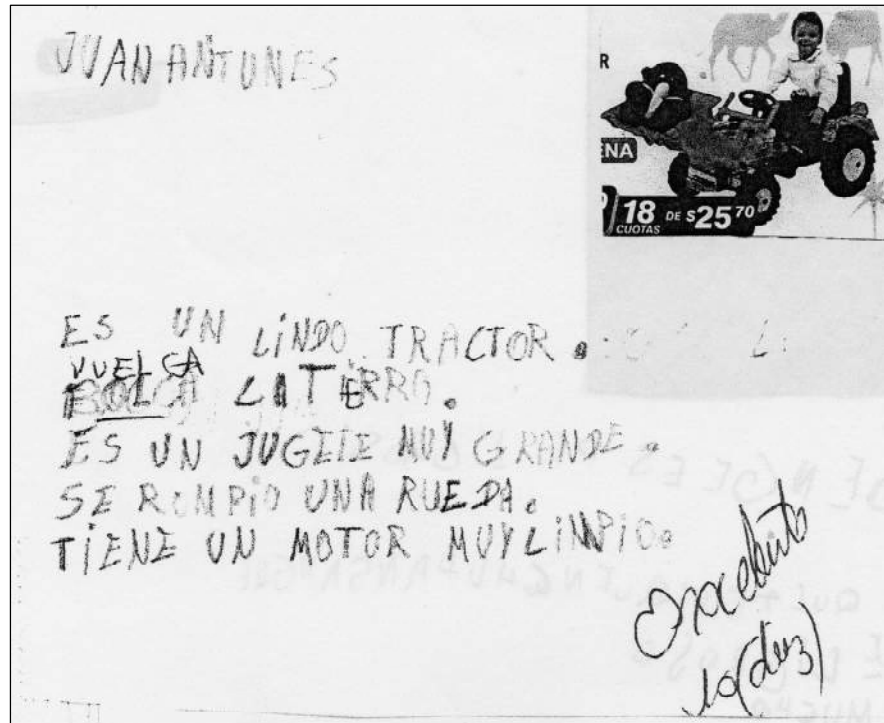 JUAN ANTUNES
R
ENA
18 CUOTAS DE $25 70
ES UN LINDO TRACTOR.
VUELCA
LA TIERRA.
ES UN JUGETE MUY GRANDE.
SE ROMPIO UNA RUEDA.
TIENE UN MOTOR MUY LIMPIO.
Excelente
10 (diez)